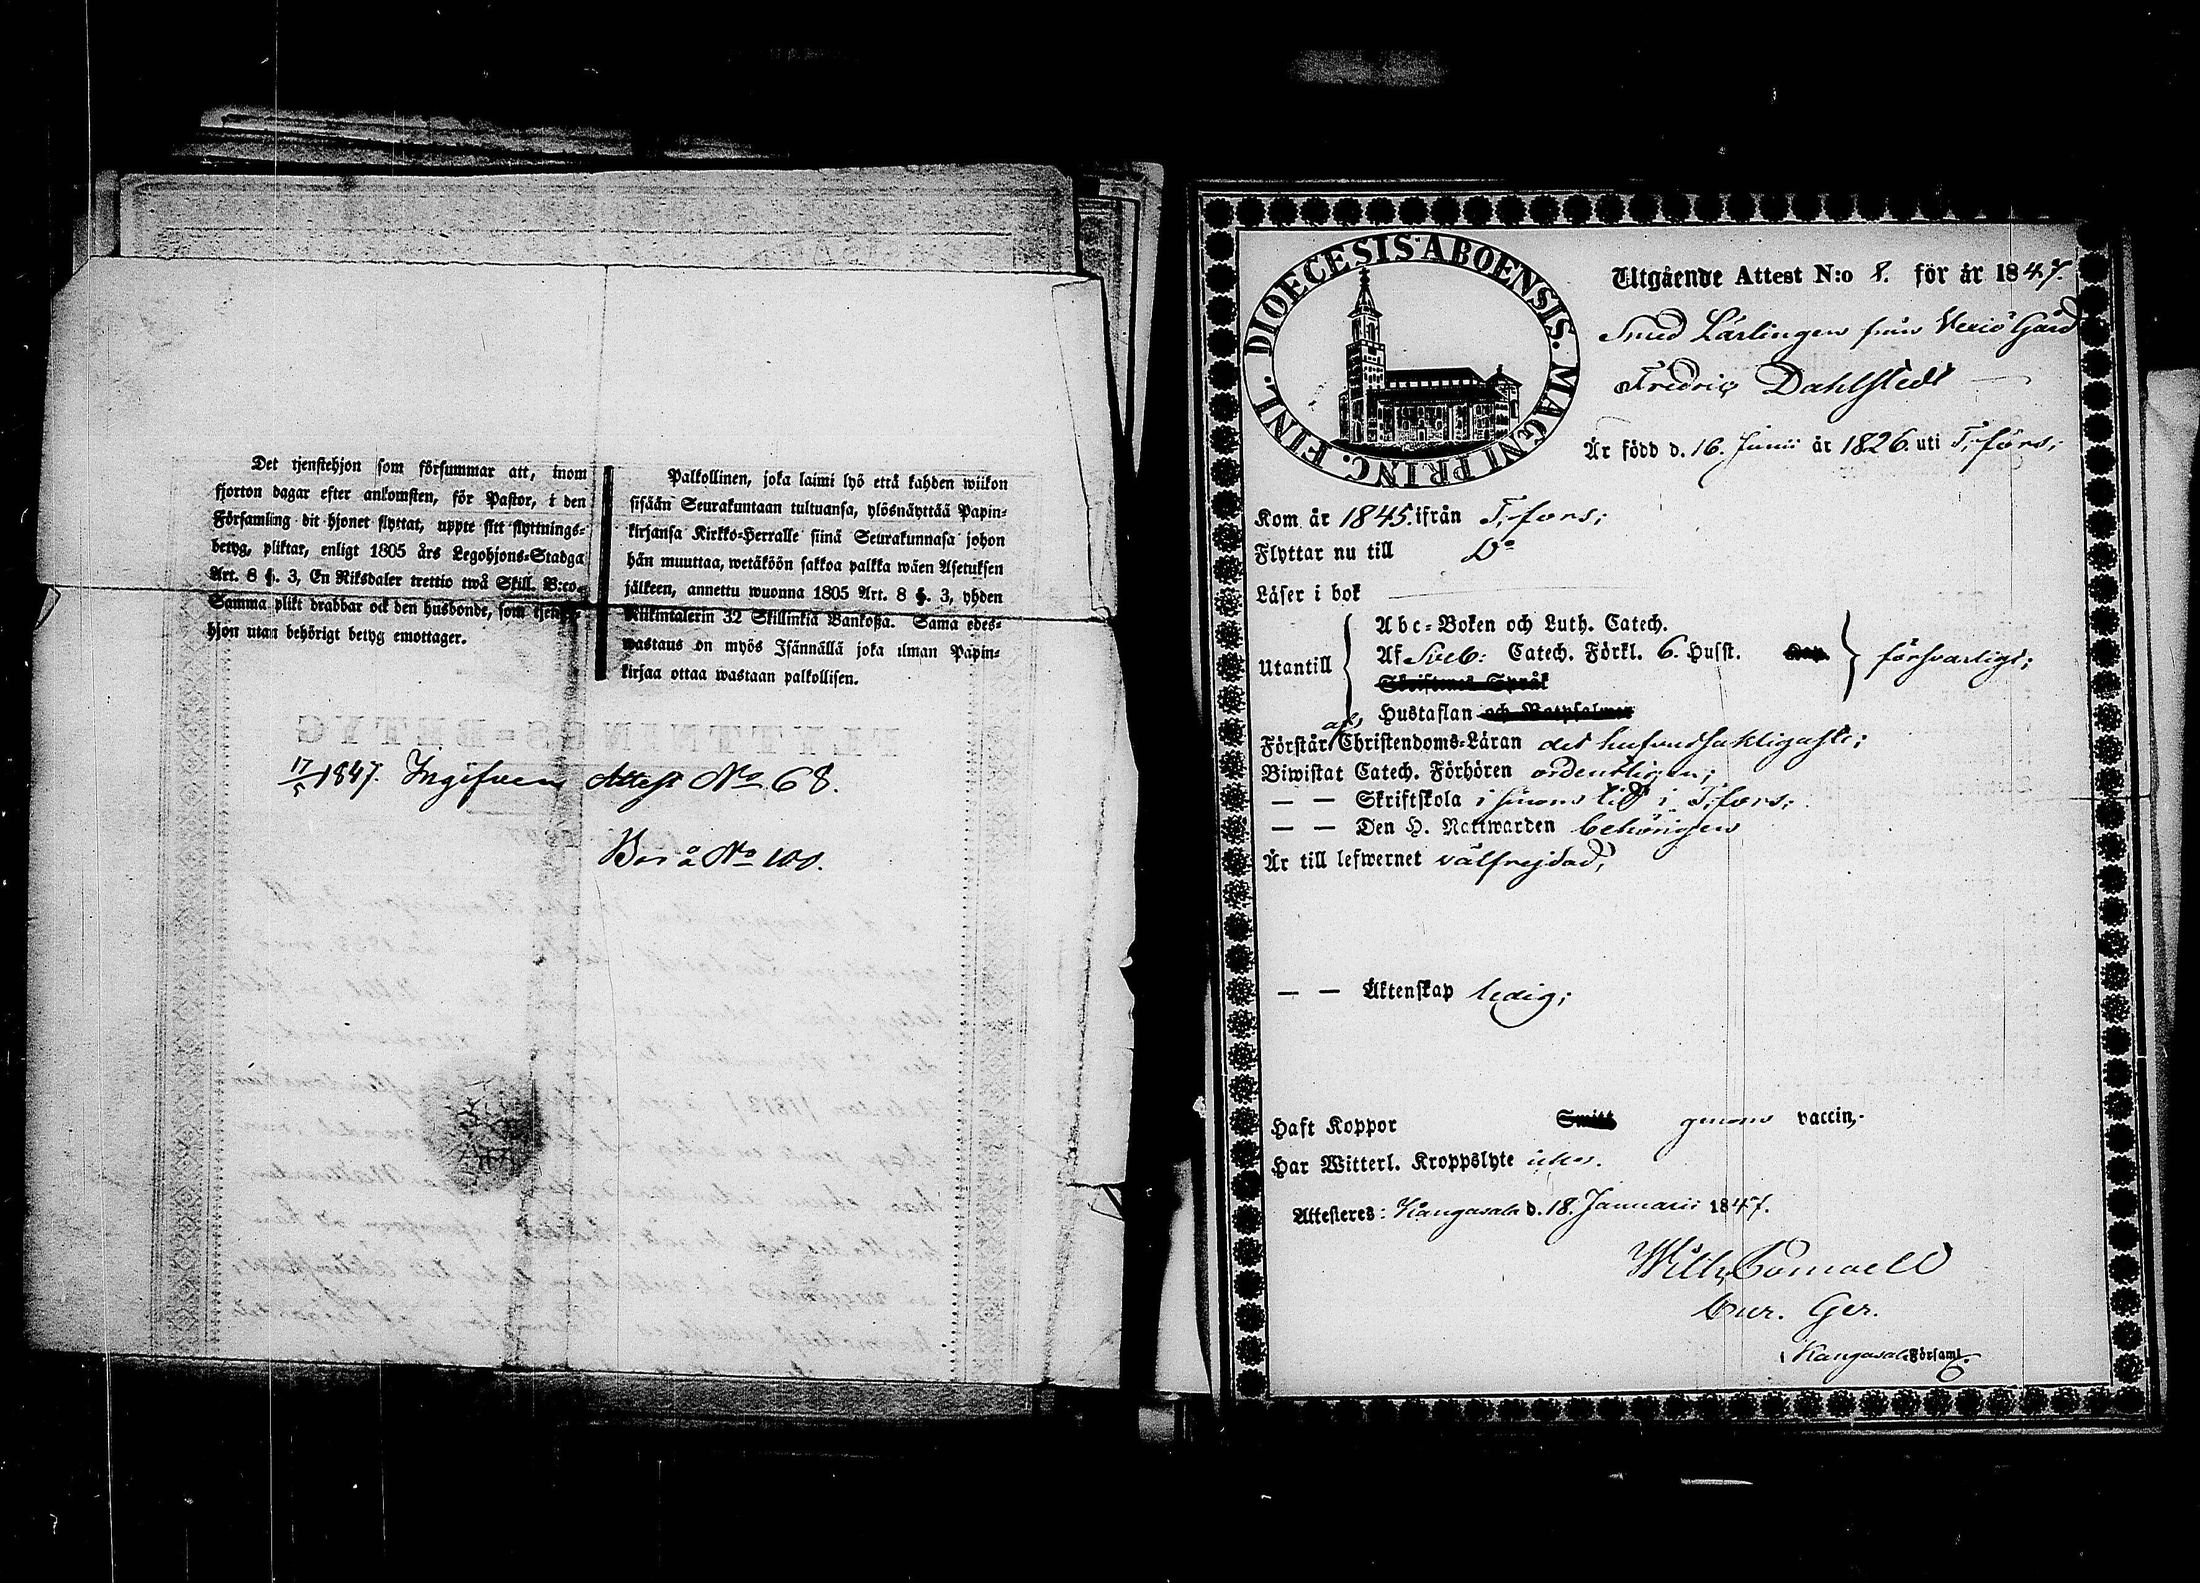 Det tjenstehjon som försummar att, inom
fjorton dagar efter ankomsten, för Pastor, i den
Församling dit hjonet flyttat, uppte sitt flyttnings-
betyg, pliktar, enligt 1805 års Legohjons-Stadga
Art. 8 §. 3, En Riksdaler trettio twå Skill. B:co.
Samma plikt drabbar ock den husbonde, som tjenste-
hjon utan behörigt betyg emottager.
Palkollinen, joka laimi lyö että kahden wiikon
sisään Seurakuntaan tultuansa, ylösnäyttää Papin-
kirjansa Kirkko-Herralle siinä Seurakunnasa johon
hän muuttaa, wetäköön sakkoa palkka wäen Asetuksen
jälkeen, annettu wuonna 1805 Art. 8 §. 3, yhden
Riikintalerin 32 Skillinkiä Bankoßa. Sama edes-
wastaus on myös Isännällä joka ilman Papin-
kirjaa ottaa wastaan palkollisen.
FLYTTNINGS-BETYG
17/5 1847. Ingifven Attest No 68.
Bor å No 100.
DIOECESIS ABOENSIS. MAGNI PRINC. FINL.
Utgående Attest N:o 8. för år 1847.
Smed Lärlingen från Vexiö Gård
Fredric Dahlstedt
Är född d. 16. Junii år 1826. uti T:fors;
Kom år 1845. ifrån T:fors;
Flyttar nu till Do
Läser i bok
Utantill
Abc-Boken och Luth. Catech.
Af Sveb: Catech. Förkl. 6. Husst.
försvarligt;
Skriftenes Språk
Hustaflan och Botpsalmer
Förstår af Christendoms-Läran det hufvudsakligaste;
Biwistat Catech. Förhören ordentligen;
— — Skriftskola i sinom tid i T:fors;
— — Den H. Nattwarden behörigen
Är till lefwernet välfrejdad;
— — Äktenskap ledig;
Haft Koppor Smitt genom vaccin;
Har Witterl. Kroppslyte icke.
Attesteres: Kangasala d. 18. Januarii 1847.
Cur. Ger.
i Kangasala Församl.